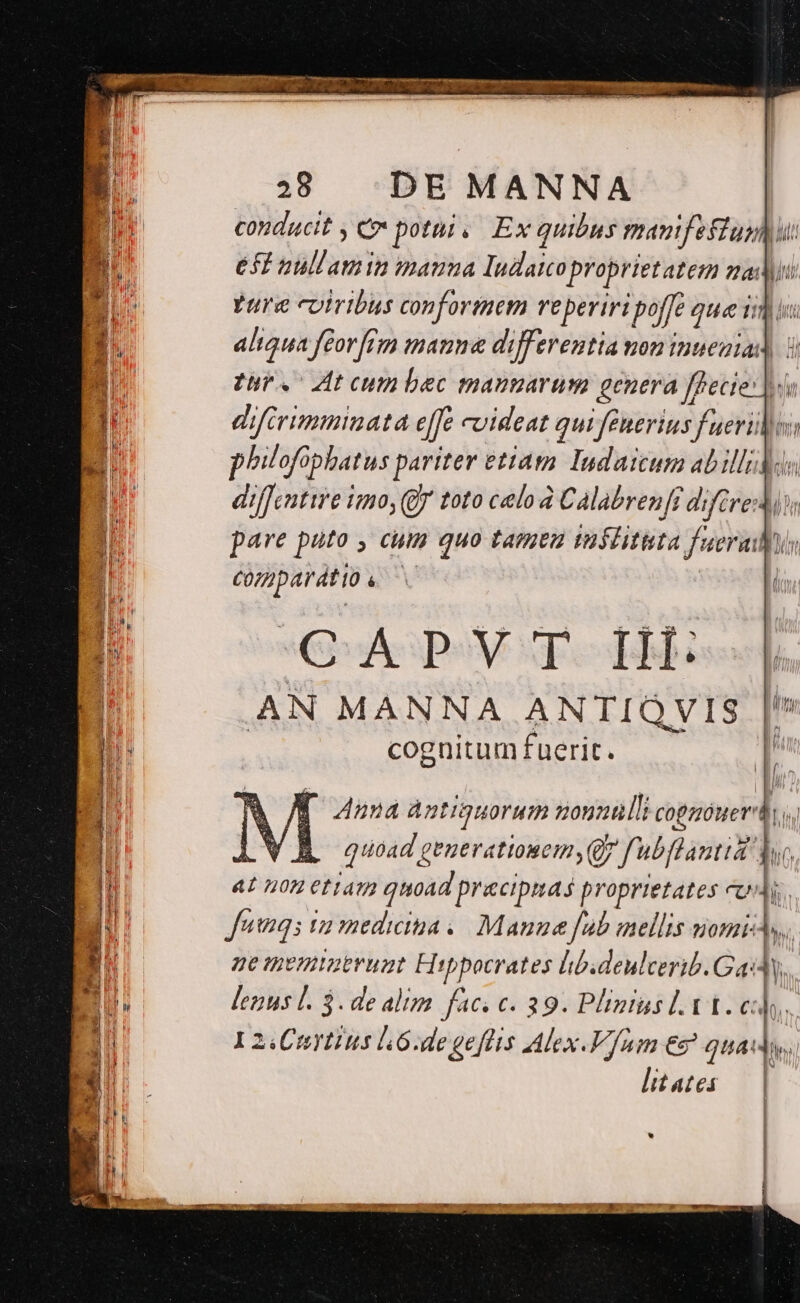 28 DE MANNA
conducit, & potui. Ex quibus manifeſtum
eſt nullam in manna Iudaico proprietatem na
turæ viribus conformem reperiri poſſe quæ in
aliqua ſeorſim mannæ differentia non inuenia
tur. At cum hæc mannarum genera ſpecie
diſcrimminata eſſe videat qui ſenerius fueri
philoſophatus pariter etiam Iudaicum ab illi
diſſentire imo, & toto cælo à Calabrenſi diſcre
pare puto, cum quo tamen inſtituta fuera
comparatio.
CAPVT III.
AN MANNA ANTIQVIS
cognitum fuerit.
MAnna antiquorum nonnulli cognouer
quoad generationem, & ſubſtantiã
at non etiam quoad præcipuas proprietates
ſumq; in medicina. Mannæ ſub mellis nomi
ne meminerunt Hippocrates lib. de ulcerib. Ga
lenus l. 3. de alim. fac. c. 39. Plinius l. 11. c.
12. Curtius l. 6. de geſtis Alex. Vſum & qua
litates